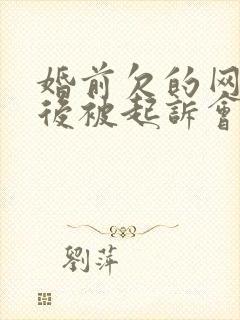 婚前欠的网
後被起訴會
劉萍